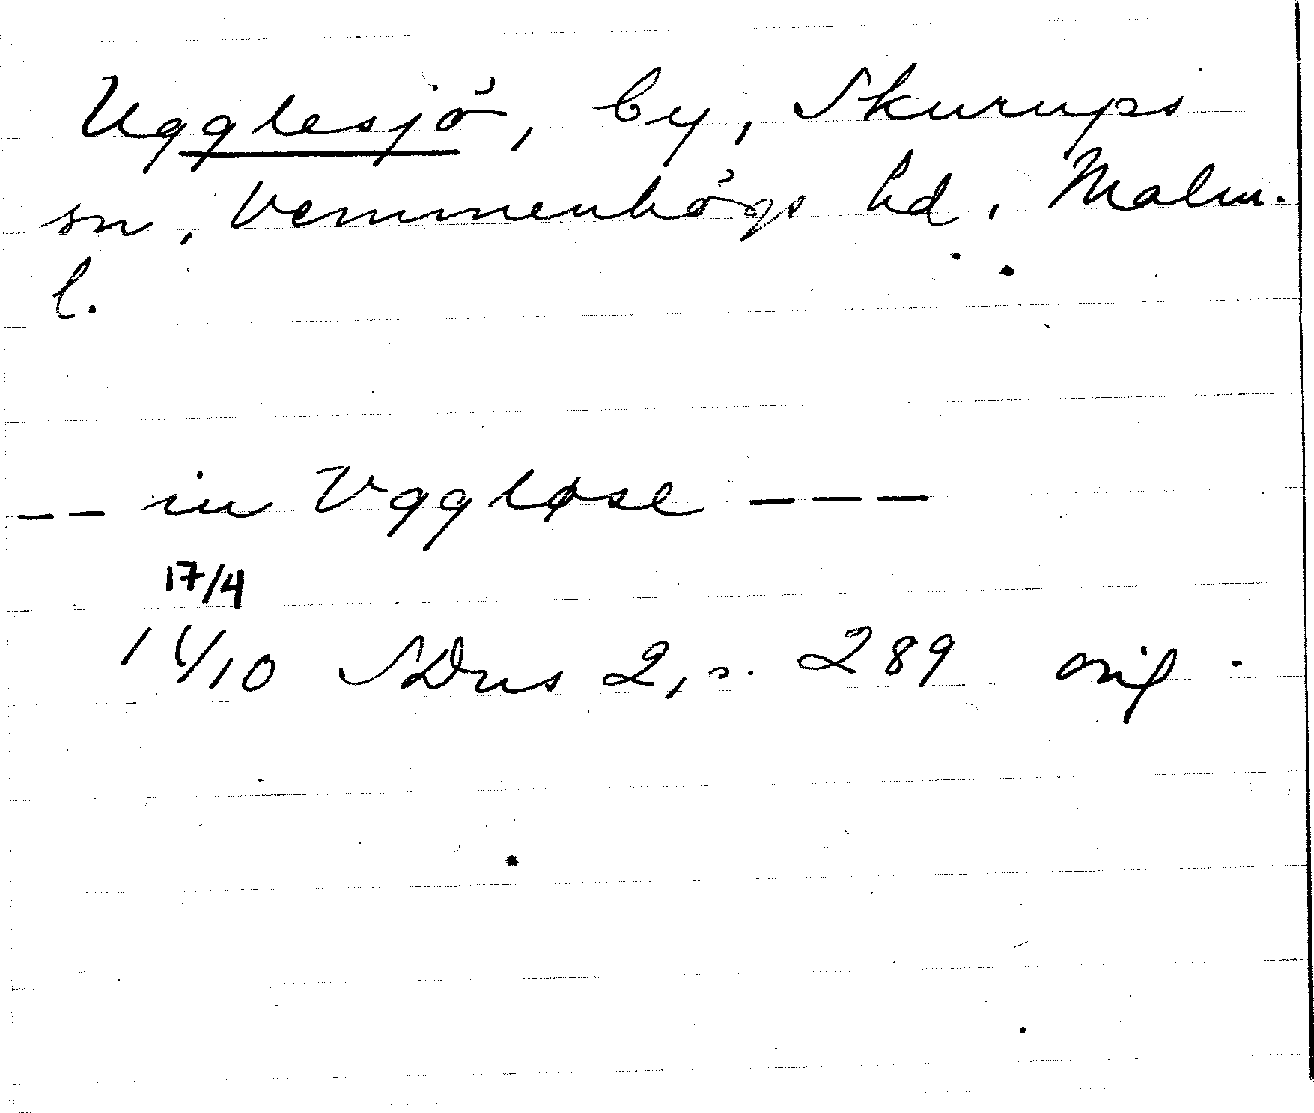 Ugglesjö, by, Skurups
sn, Vemmenhögs hd, Malm.
l.
-- in Vggløse ---
17/4
14/10 SDns 2, s. 289 orig.